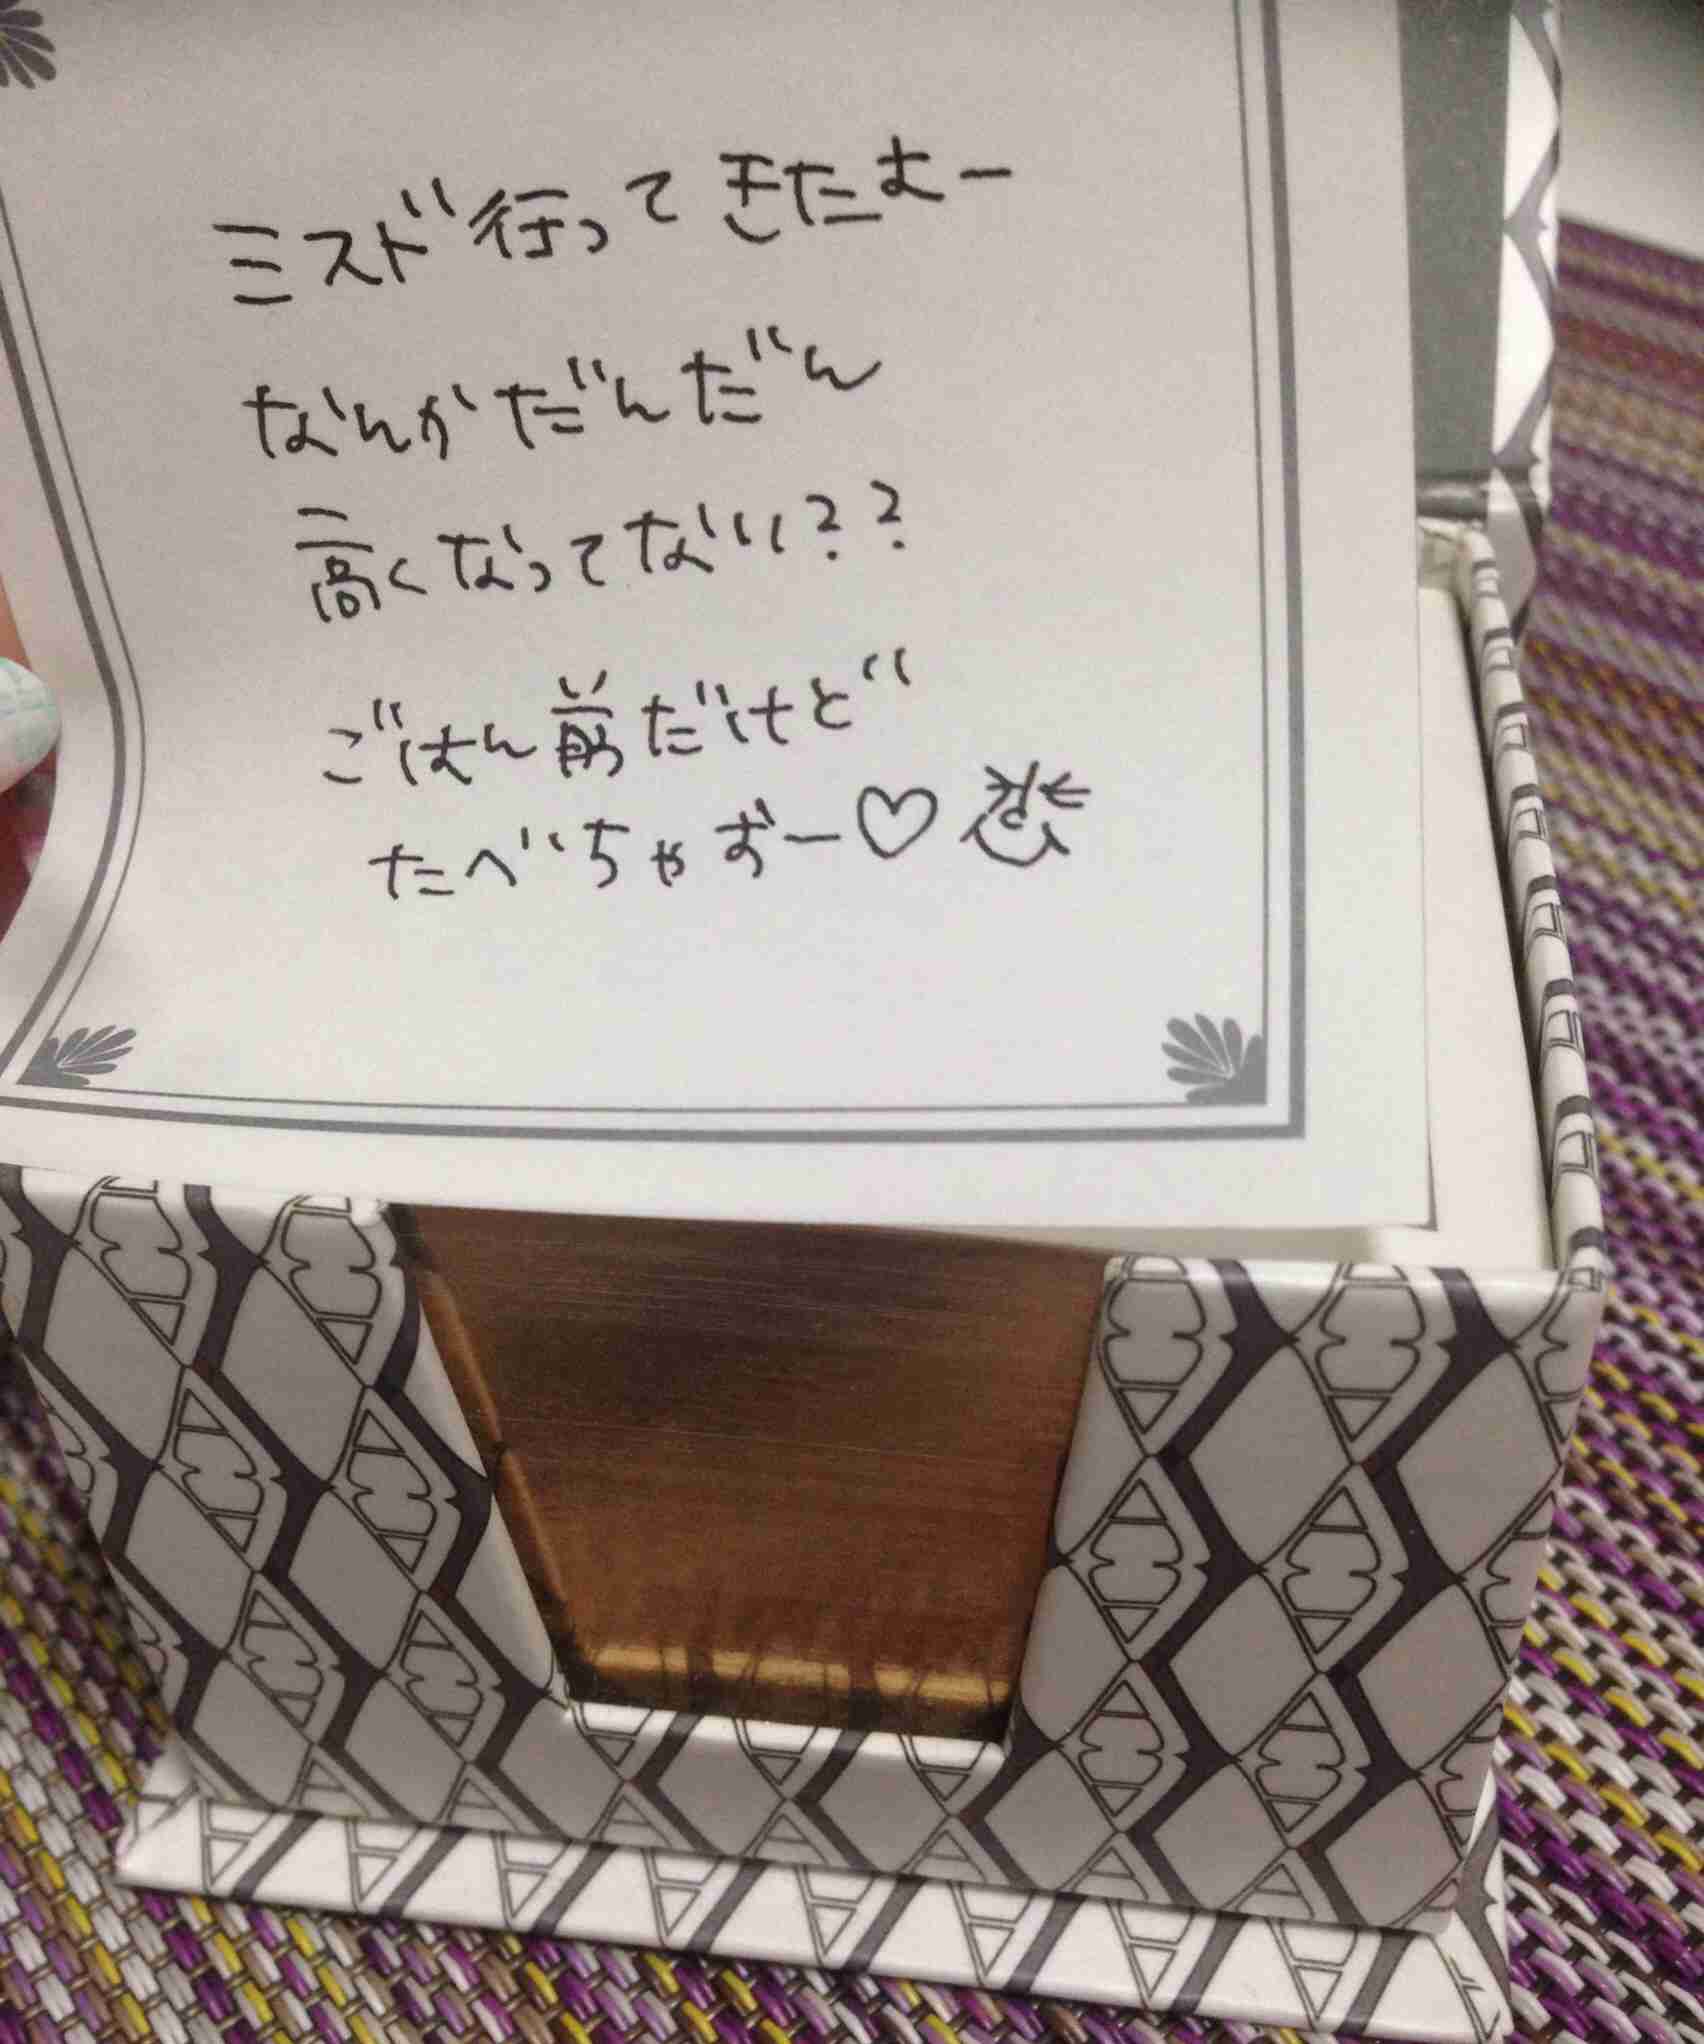 ミスド行ってきたよー
なんかだんだん
高くなってない??
ごはん前だけど
たべちゃおー♡